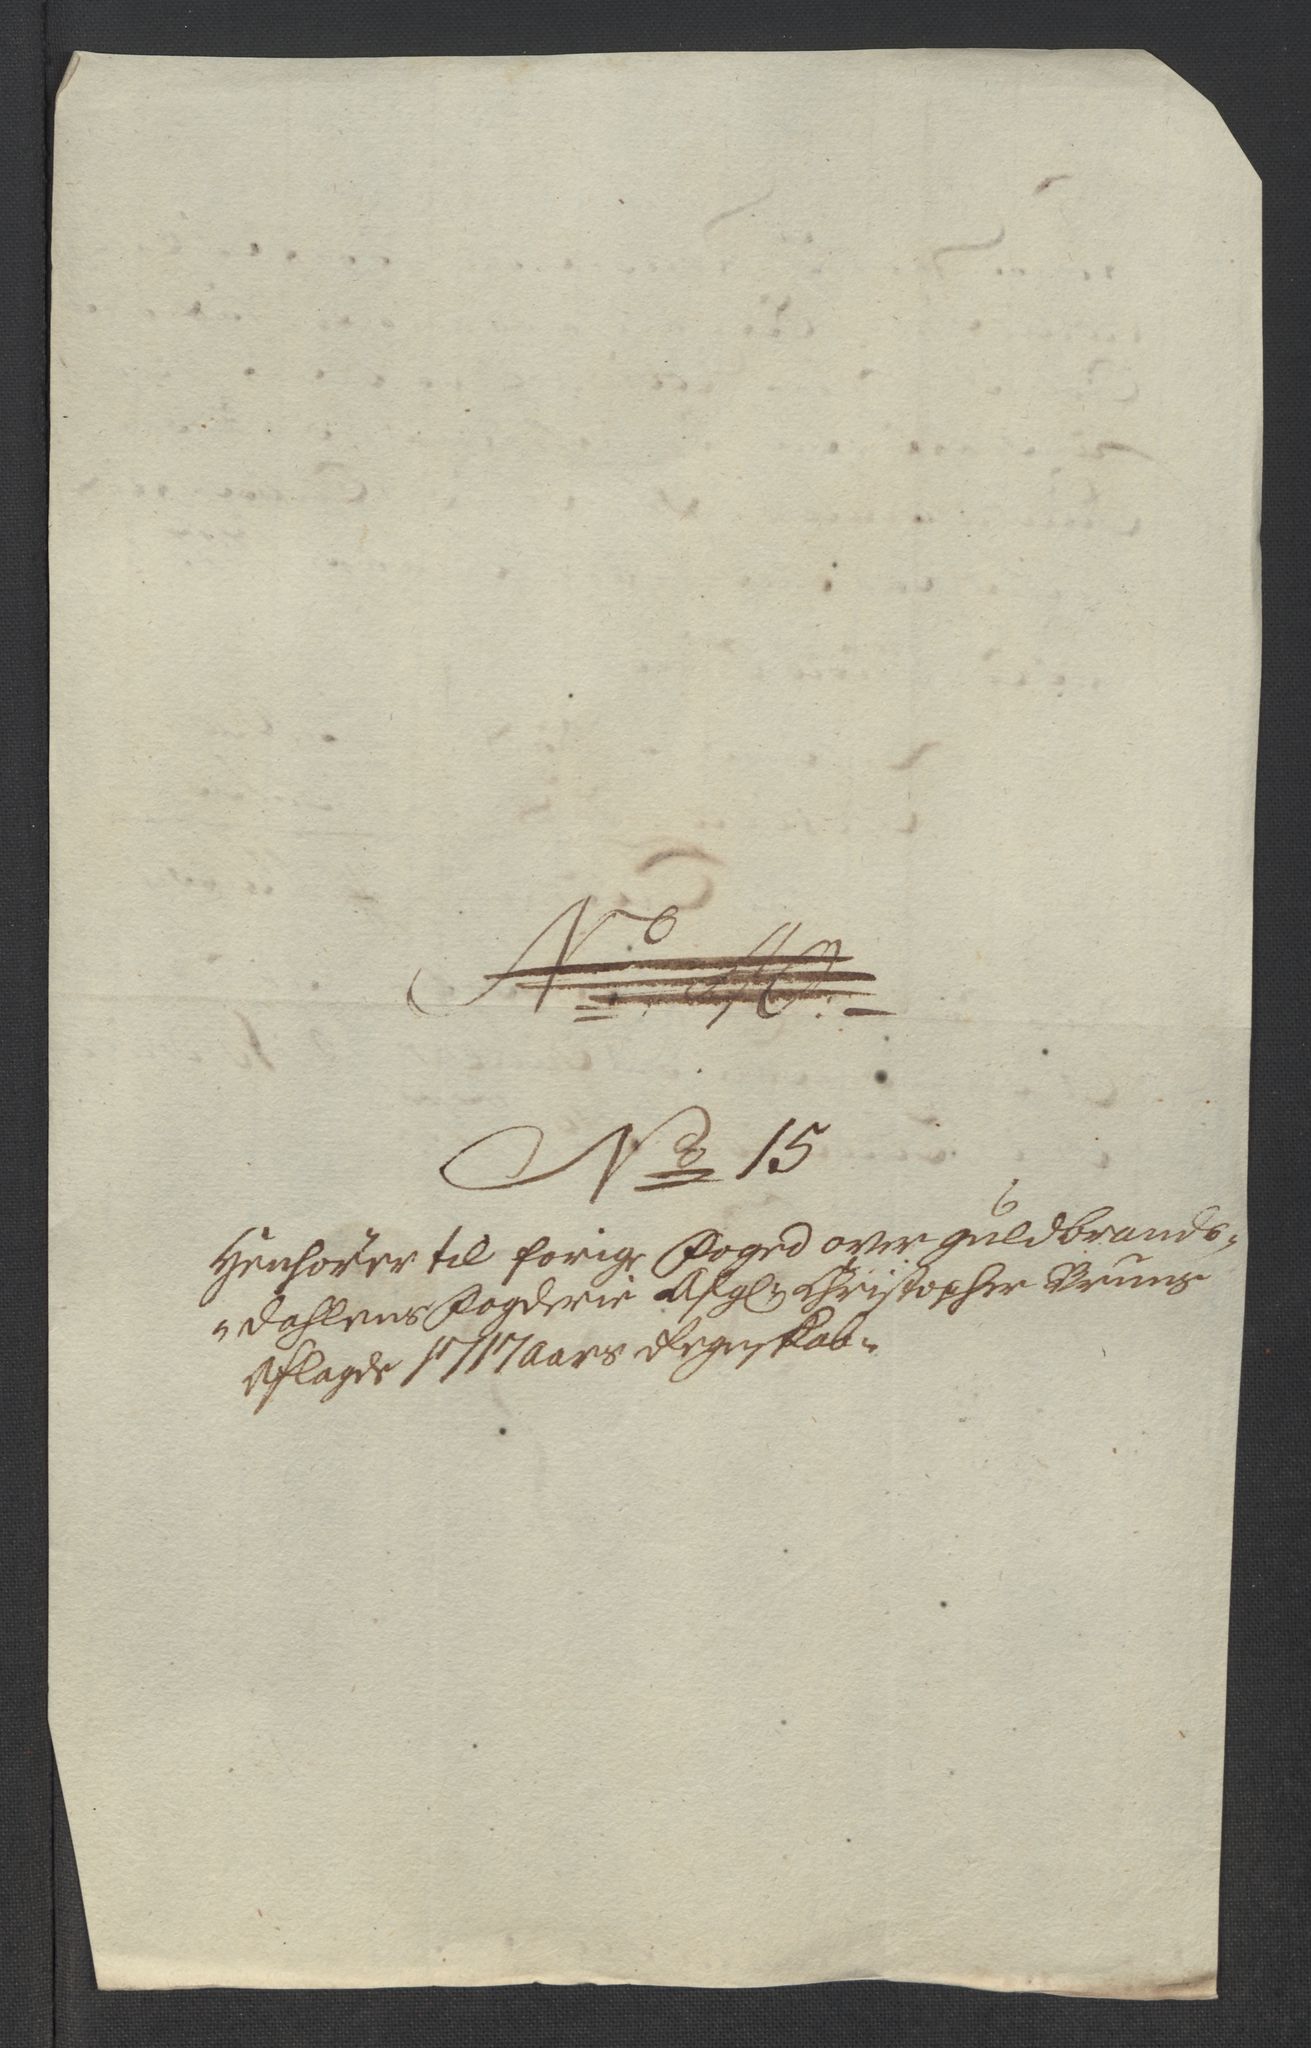 No 15
Henhører til forige Foged over guldbrands-
dahlens Fogderie Afgl: Christopher Bruuns
Aflagde 1717 Aars Regenskab.